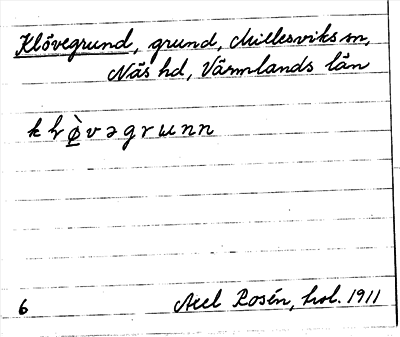 Klövegrund, grund, Millesviks sn,
Näs hd, Värmlands län
k ɽ ø̤̀ v ə g r ɯ n n
6
Axel Rosén, hol. 1911